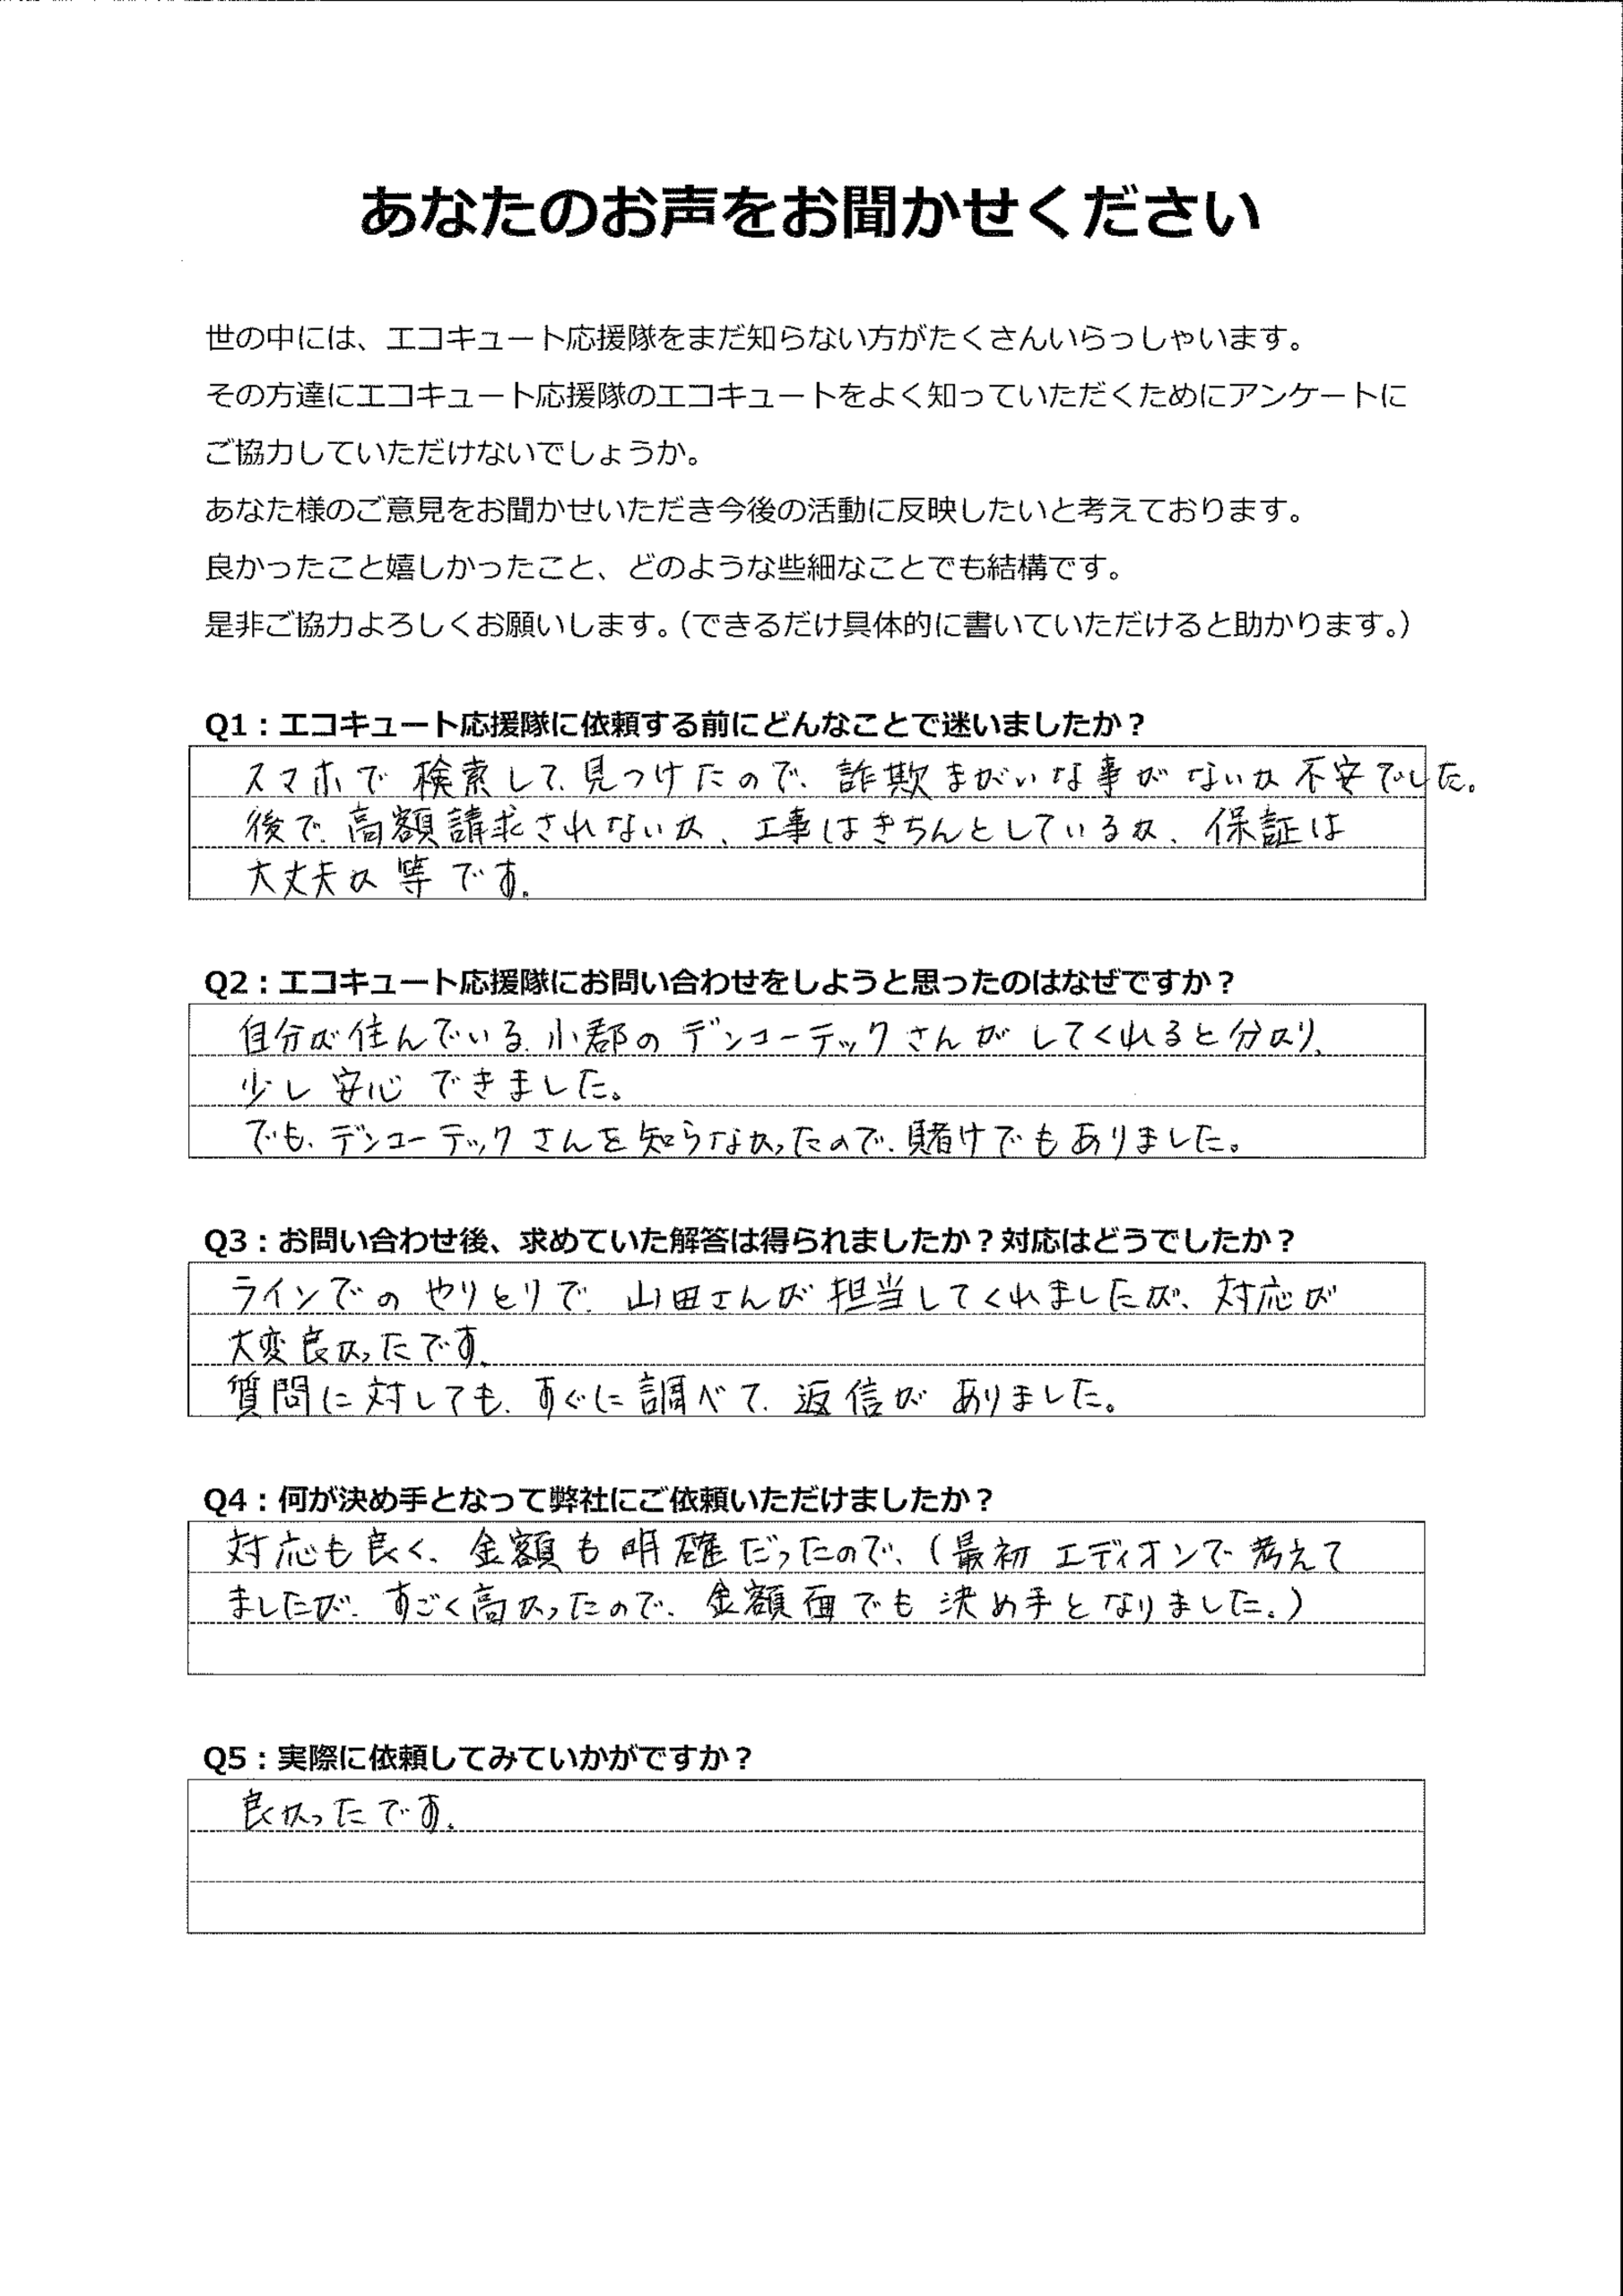 あなたのお声をお聞かせください
世の中には、エコキュート応援隊をまだ知らない方がたくさんいらっしゃいます。
その方達にエコキュート応援隊のエコキュートをよく知っていただくためにアンケートに
ご協力していただけないでしょうか。
あなた様のご意見をお聞かせいただき今後の活動に反映したいと考えております。
良かったこと嬉しかったこと、どのような些細なことでも結構です。
是非ご協力よろしくお願いします。（できるだけ具体的に書いていただけると助かります。）
Q1：エコキュート応援隊に依頼する前にどんなことで迷いましたか？
スマホで検索して、見つけたので、詐欺まがいな事がないか不安でした。
後で、高額請求されないか、工事はきちんとしているか、保証は
大丈夫か等です。
Q2：エコキュート応援隊にお問い合わせをしようと思ったのはなぜですか？
自分が住んでいる、小郡のデンコーテックさんがしてくれると分かり、
少し安心できました。
でも、デンコーテックさんを知らなかったので、賭けでもありました。
Q3：お問い合わせ後、求めていた解答は得られましたか？対応はどうでしたか？
ラインでのやりとりで、山田さんが担当してくれましたが、対応が
大変良かったです。
質問に対しても、すぐに調べて、返信がありました。
Q4：何が決め手となって弊社にご依頼いただけましたか？
対応も良く、金額も明確だったので、（最初エディオンで考えて
ましたが、すごく高かったので、金額面でも決め手となりました。）
Q5：実際に依頼してみていかがですか？
良かったです。